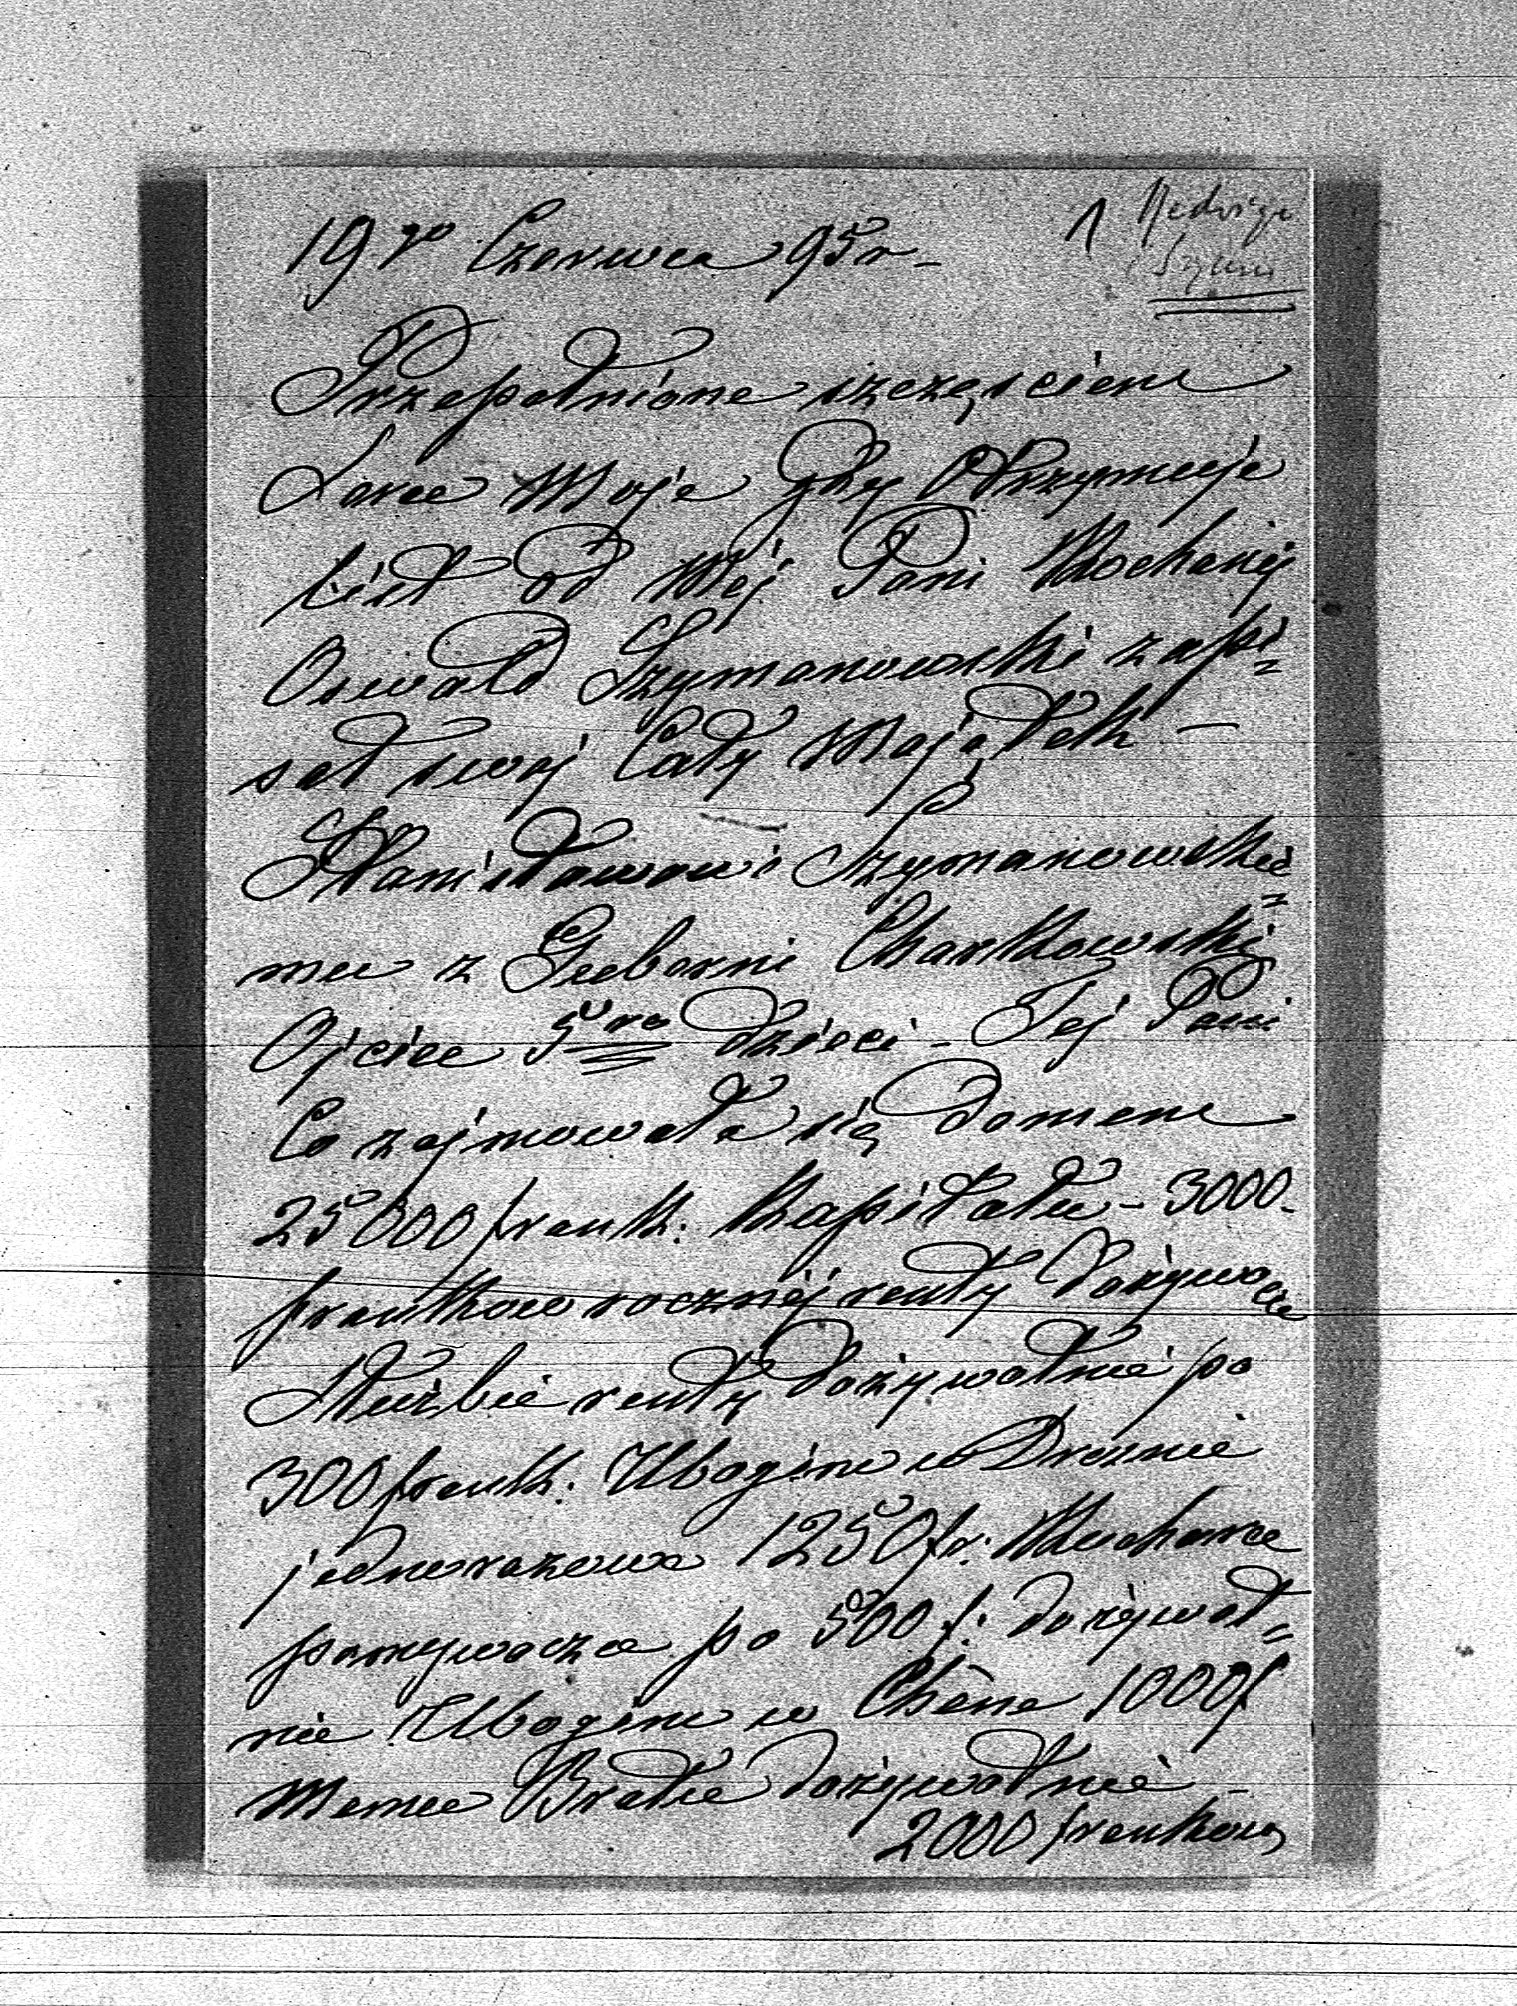 19go Czerwca 95r-
1 Hedwige
Szym
Przepełnione szczęściem
Serce Moje gdy Otrzymuje
List od Mej Pani Kochanej
Oswald Szymanowski zapi=
sał swój Cały Majątek -
Stanisławowi Szymanowskie=
mu z Guberni Charkowskiej
Ojciec 5ro dzieci - Tej Pani
Co zajmowała się domem
25000 frank: Kapitału - 3000-
franków rocznéj renty Dożywocie
Służbie renty dożywotnie po
300 frank: Ubogim w Dreznie
jednorazowe 1250 fr: Kucharce
pomywaczce po 500 f: dożywot=
nie Ubogim w Chêne 1000f
Memu Bratu dożywotnie -
2000 franków